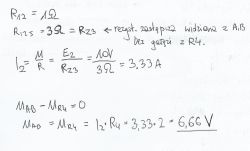 R12 = 1Ω
R125 = 3Ω = RZ3 ← rezyst. zastępcza widziana z A,B
bez gałęzi z R4.
I2 = M/R = E2/RZ3 = 10V/3Ω = 3,33A
MAB - MR4 = 0
MAB = MR4 = I2 · R4 = 3,33 · 2 = 6,66 V